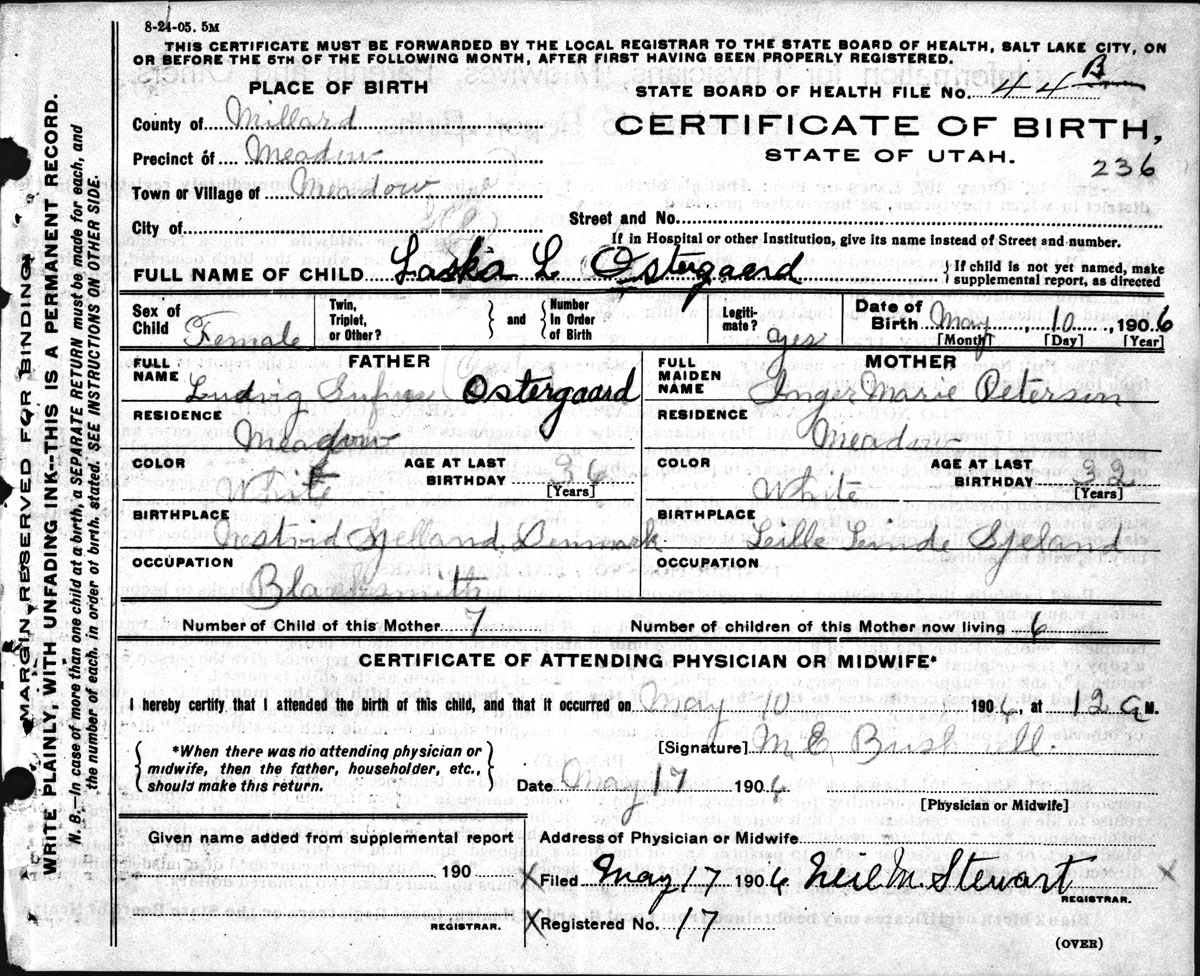 8-24-05. 5M
THIS CERTIFICATE MUST BE FORWARDED BY THE LOCAL REGISTRAR TO THE STATE BOARD OF HEALTH, SALT LAKE CITY, ON
OR BEFORE THE 5TH OF THE FOLLOWING MONTH, AFTER FIRST HAVING BEEN PROPERLY REGISTERED.
PLACE OF BIRTH
STATE BOARD OF HEALTH FILE No. 44 B
County of Millard
CERTIFICATE OF BIRTH,
Precinct of Meadow
STATE OF UTAH.
236
Town or Village of Meadow
City of
Street and No.
If in Hospital or other Institution, give its name instead of Street and number.
FULL NAME OF CHILD Laska L Ostergaard } If child is not yet named, make supplemental report, as directed
Sex of Child Female Twin, Triplet, or Other? } and { Number in Order of Birth Legiti-mate? yes Date of Birth May, 10, 1906
[Month] [Day] [Year]
FATHER
FULL NAME Ludvig Ostergaard
RESIDENCE
Meadow
COLOR White AGE AT LAST BIRTHDAY 36 [Years]
BIRTHPLACE
Sjelland, Denmark
OCCUPATION
Blacksmith
MOTHER
FULL MAIDEN NAME Inger Marie Petersen
RESIDENCE
Meadow
COLOR White AGE AT LAST BIRTHDAY 32 [Years]
BIRTHPLACE
Leille Linde Sjeland
OCCUPATION
Number of Child of this Mother 7 Number of children of this Mother now living 6
CERTIFICATE OF ATTENDING PHYSICIAN OR MIDWIFE*
I hereby certify that I attended the birth of this child, and that it occurred on May 10 1906, at 12 a M.
{ *When there was no attending physician or
midwife, then the father, householder, etc.,
should make this return. }
[Signature] M. E. Bushnell.
Date May 17 1906
[Physician or Midwife]
Given name added from supplemental report
190
REGISTRAR.
Address of Physician or Midwife
X Filed May 17 1906 Neil M. Stewart X
REGISTRAR.
X Registered No. 17
(OVER)
MARGIN RESERVED FOR BINDING.
WRITE PLAINLY, WITH UNFADING INK—THIS IS A PERMANENT RECORD.
N. B.—In case of more than one child at a birth, a SEPARATE RETURN must be made for each, and
the number of each, in order of birth, stated. SEE INSTRUCTIONS ON OTHER SIDE.